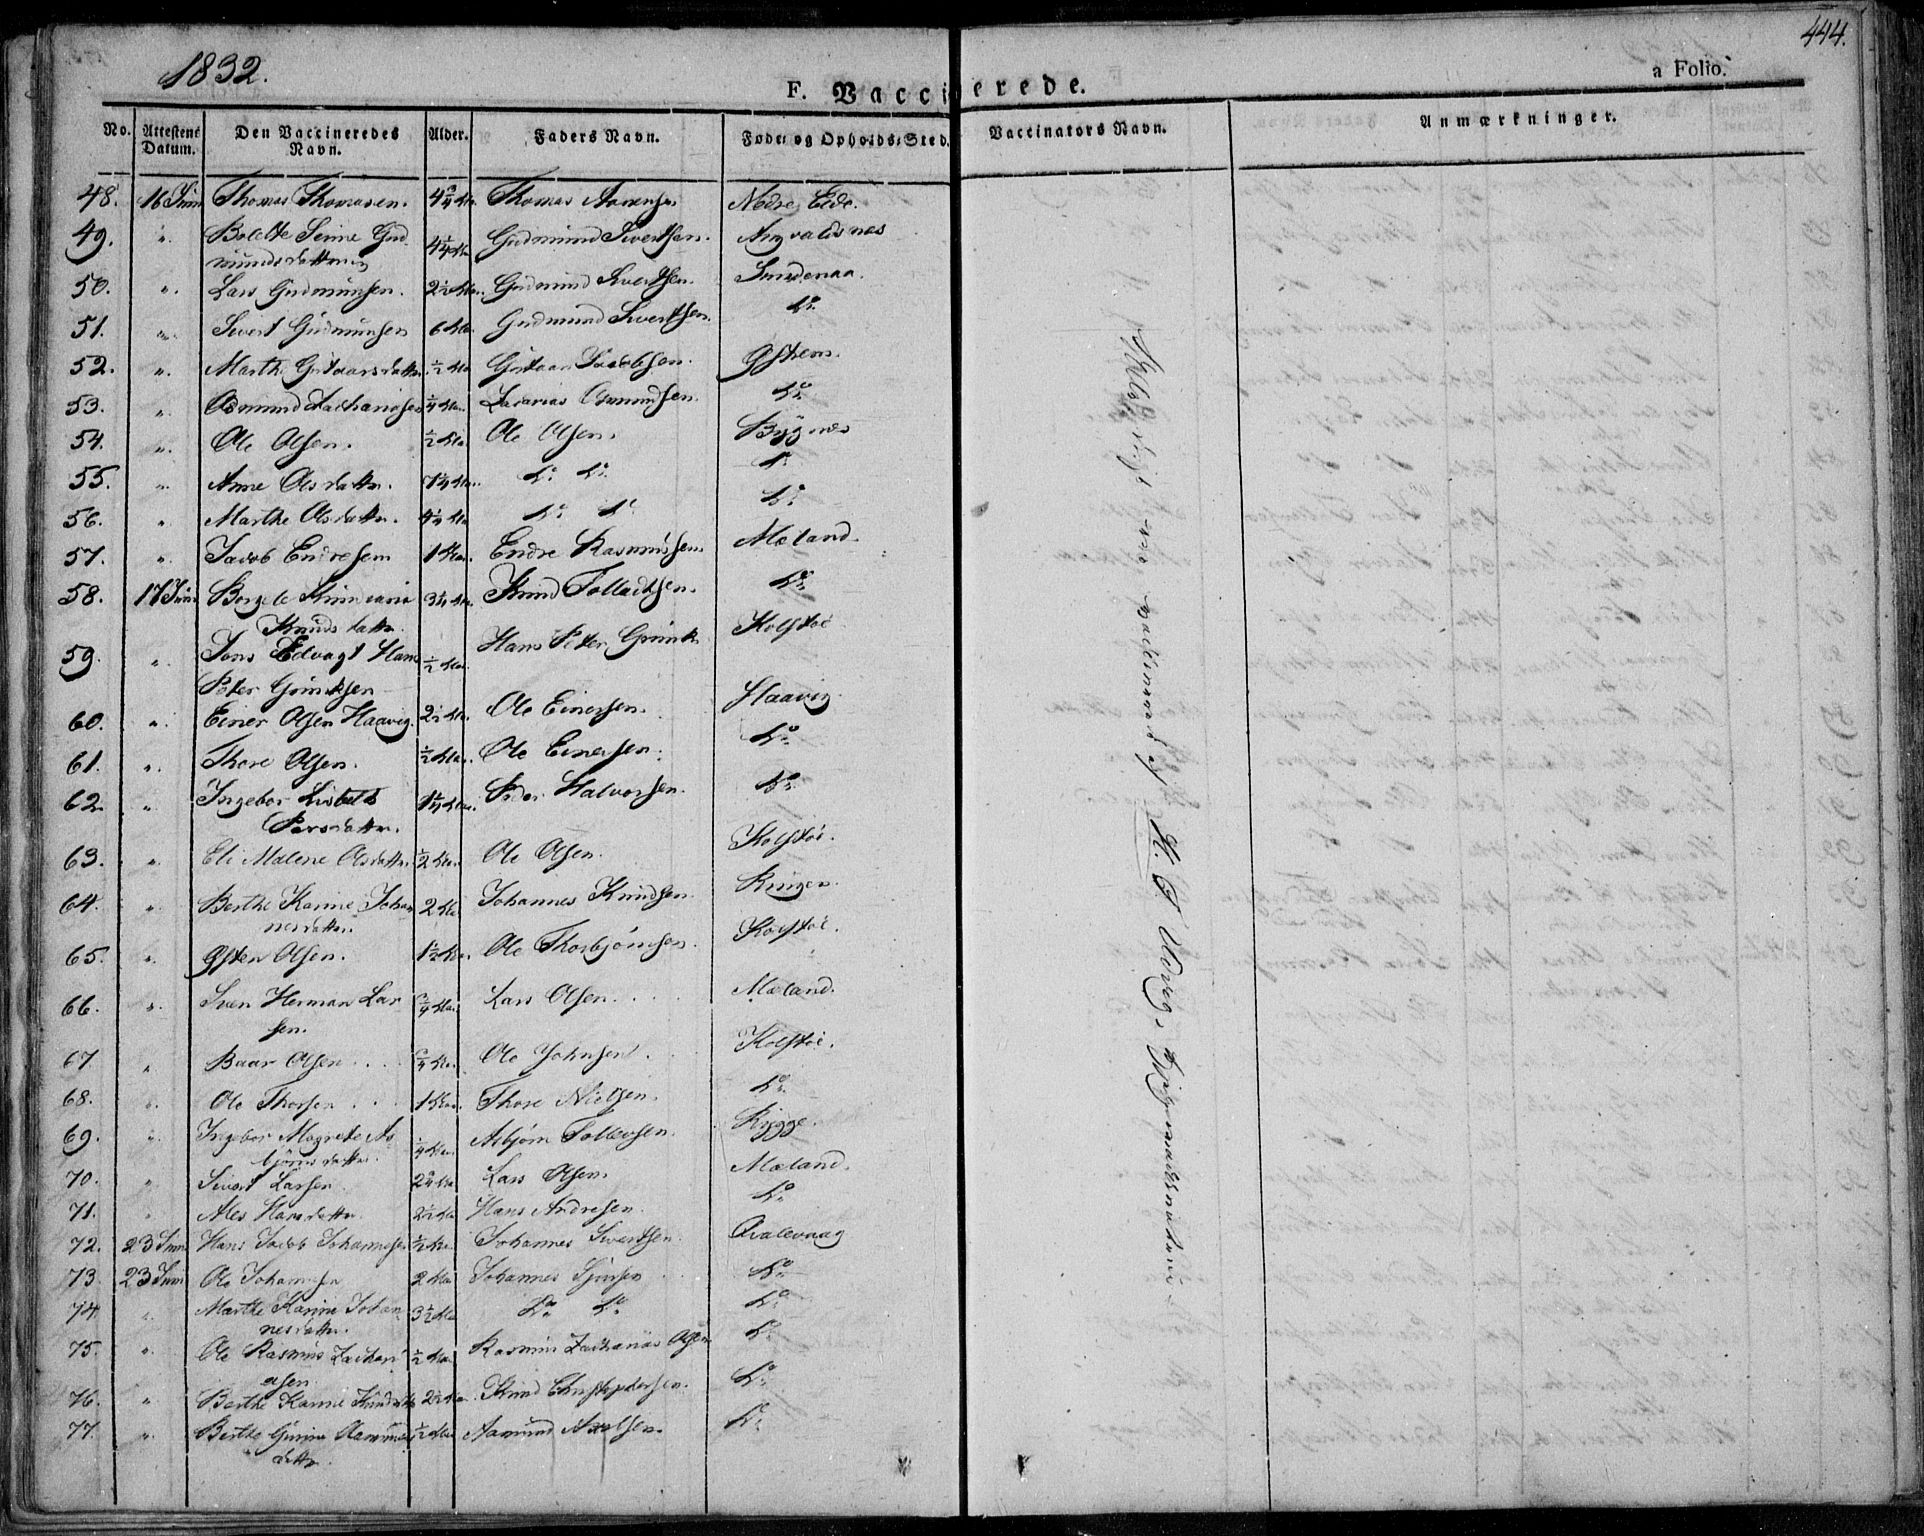 1832.
444.
F. Vaccinerede.
a Folio.
No. Attestens Datum. Den Vaccineredes Navn. Alder. Faders Navn. Føde- og Opholds-Sted. Vaccinators Navn. Anmærkninger.
48. 16 Juni Thomas Thomasen. 4 3/4 Thomas Aanensen Nedre Eide.
49. " Bolette Serine Gud-
mundsdatter 4 1/4 Gudmund Sivertsen. Augvaldsnæs
50. " Lars Gudmunsen. 2 1/2 Gudmund Sivertsen.
51. " Sivert Gudmunsen 6 Gudmund Sivertsen. do
52. " Marthe 1/2 Jacobsen. Østhem.
53. " Osmund Zachariasen 1/4 Zacarias Osmundsen. do
54. " Ole Olsen. 1/2 Ole Olsen. Bygnes
55. " Anne Olsdatter. 1 1/4 do do do
56. " Marthe Olsdatter. 4 1/4 do do do
57. " Jacob Endresen 1 Endre Rasmussen Mæland.
58. 17 Juni Borgele
Knudsdatter 3 1/4 Knud Tollachsen. do
59. " Jons Edvagt Hans
Peter 1/2 Hans Peter Kolstøe
60. " Einer Olsen Haavig. 2 1/2 Ole Einersen. Haavig
61. " Thore Olsen. 1/2 Ole Einersen. do
62. " Ingebor Lisbeth
Persdatter. 1 1/4 Peder Halvorsen. do
63. " Eli Malene Olsdatter 1/2 Ole Olsen. Kolstøe.
64. " Berthe Karine Johan-
nesdatter. 2 Johannes Knudsen. Ringen.
65. " Østen Olsen. 1 1/2 Ole Thorbjørnsen Kolstøe.
66. " Sven Herman Lar-
sen. 3/4 Lars Olsen. Mæland.
67 " Baar Olsen 3/4 Ole Johnsen. Kolstøe.
68. " Ole Thorsen 1 Thore Nielsen. do
69. " Ingebor Magrete As-
bjørnsdatter. 1/4 Asbjørn Tollevsen. Rygge.
70. " Sivert Larsen 2 3/4 Lars Olsen. Mæland.
71. " Ales Hansdatter 2 1/2 Hans Andresen. do
72. 23 Juni Hans Jacob Johannesen 1/2 Johannes Sivertsen. Qvalevaag
73. 23 Juni Ole Johannesen 2 Johannes Sjursen do
74 " Marthe Karine Johan-
nesdatter. 3 1/2 do do do
75. " Ole Rasmus Zachari-
asen. 1/2 Rasmus Zacharias Olsen do
76. " Berthe Karine Knudsdatter 2 1/2 Knud Christophersen. do
77. " Berthe Gurine Aamunds-
datter. 1/2 Aamund Axelsen. do
vaccinered af